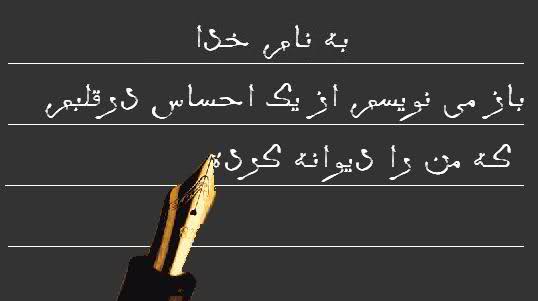 به نام خدا
باز می نویسم از یک احساس درقلبم
که من را دیوانه کرده